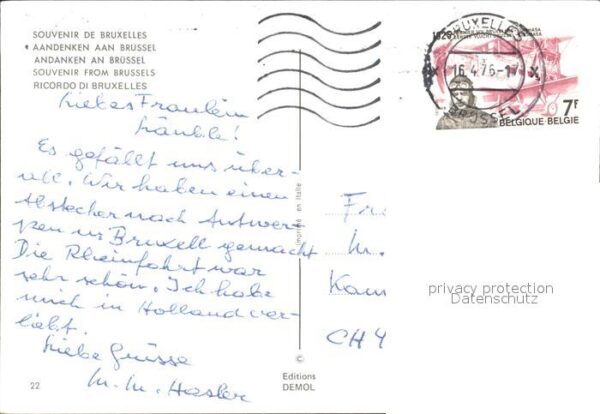 SOUVENIR DE BRUXELLES
AANDENKEN AAN BRUSSEL
ANDANKEN AN BRÜSSEL
SOUVENIR FROM BRUSSELS
RICORDO DI BRUXELLES
Liebes Fräulein
Es gefällt uns über-
all. Wir haben einen
Abstecher nach Antwer-
pen u. Bruxell gemacht
Die Rheinfahrt war
sehr schön. Ich habe
mich in Holland ver-
liebt.
Liebe Grüsse
M. M. Hasler
22
imprimé en Italie
©
Editions
DEMOL
BRUXELLES
16.4.76-17
BRUSSEL
7F
BELGIQUE-BELGIE
Fr
M.
Kam
CH 4
privacy protection
Datenschutz